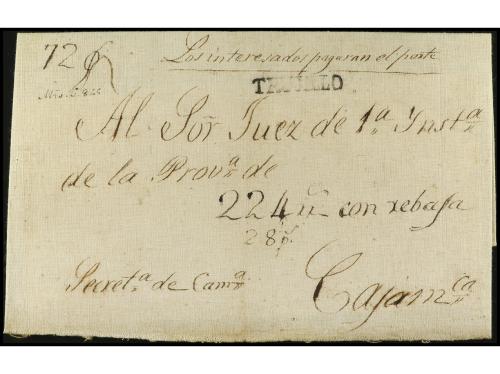 Los interesados pagaran el porte
72
TRUJILLO
Al Sor Juez de 1ª Ynstª
de la Provª de
224 con rebaja
28
Secretª de Camª
Cajamca